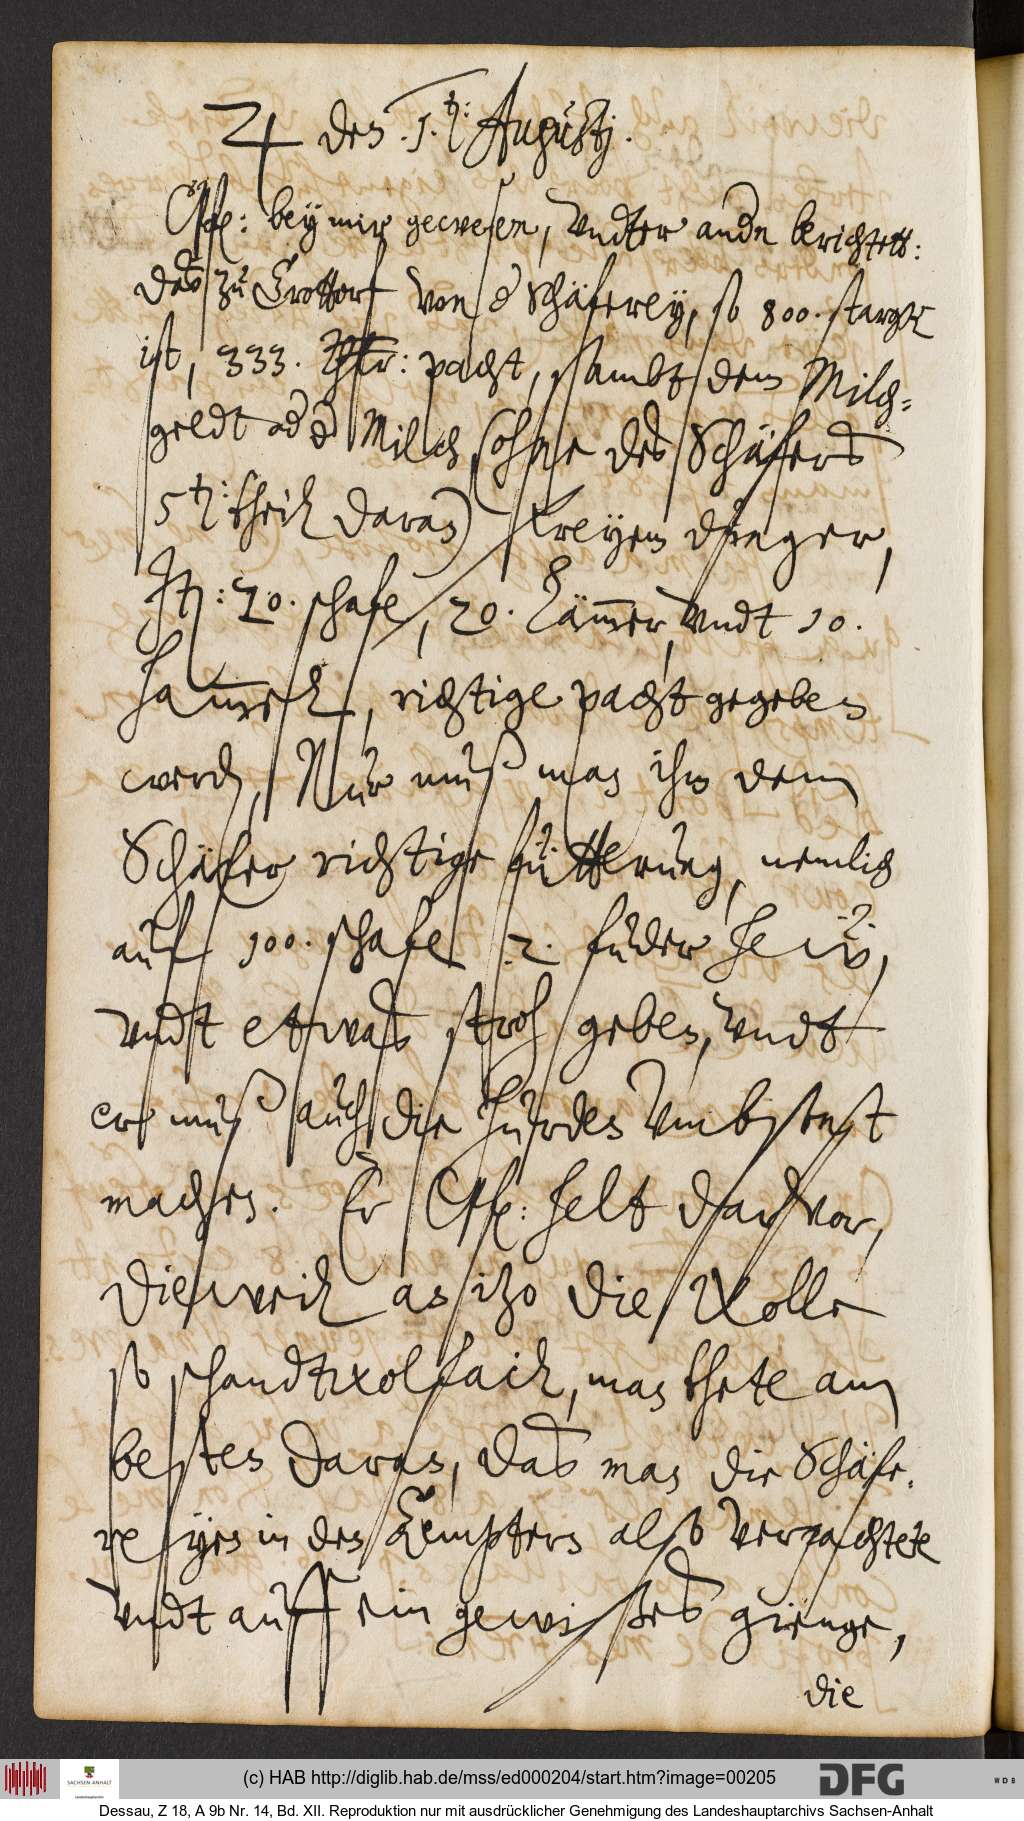 ♃ des .5.t: Augustj.
bey mir gewesen, undter andn berichtett:
das zu Crottorf von d Schäferey, so 800. starck
ist, 333. Thlr: pacht, sambt dem Milch-
geldt od d Milch (ohne des Schäfers
5t: theil daran) freyem dünger,
It: 20. schafe, 20. Lämmer, undt 10.
Hammell, richtige pacht gegeben
werdn, Nur muß man ihm dem
Schäfer richtige fütterung, nemlich
auf 100. schafe 2. fuder Heẅ,
undt etwas stroh geben, undt
er muß auch die Hürden umbsonst
machen. Er helt darvor,
dieweil as itzo die Wolle
so schandtwolfail, man thete am
besten daran, das man die Schäfe-
reyen in den Aemptern also verpachtete
undt auff ein gewißes gienge,
die
(c) HAB http://diglib.hab.de/mss/ed000204/start.htm?image=00205
SACHSEN-ANHALT
DFG
WDB
Dessau, Z 18, A 9b Nr. 14, Bd. XII. Reproduktion nur mit ausdrücklicher Genehmigung des Landeshauptarchivs Sachsen-Anhalt